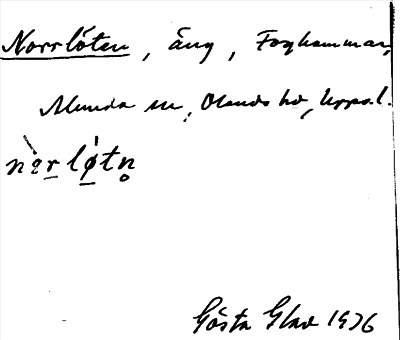 Norrlöten, äng, Foghammar,
Alunda sn, Olands hd, Upps. l.
Gösta Glad 1936